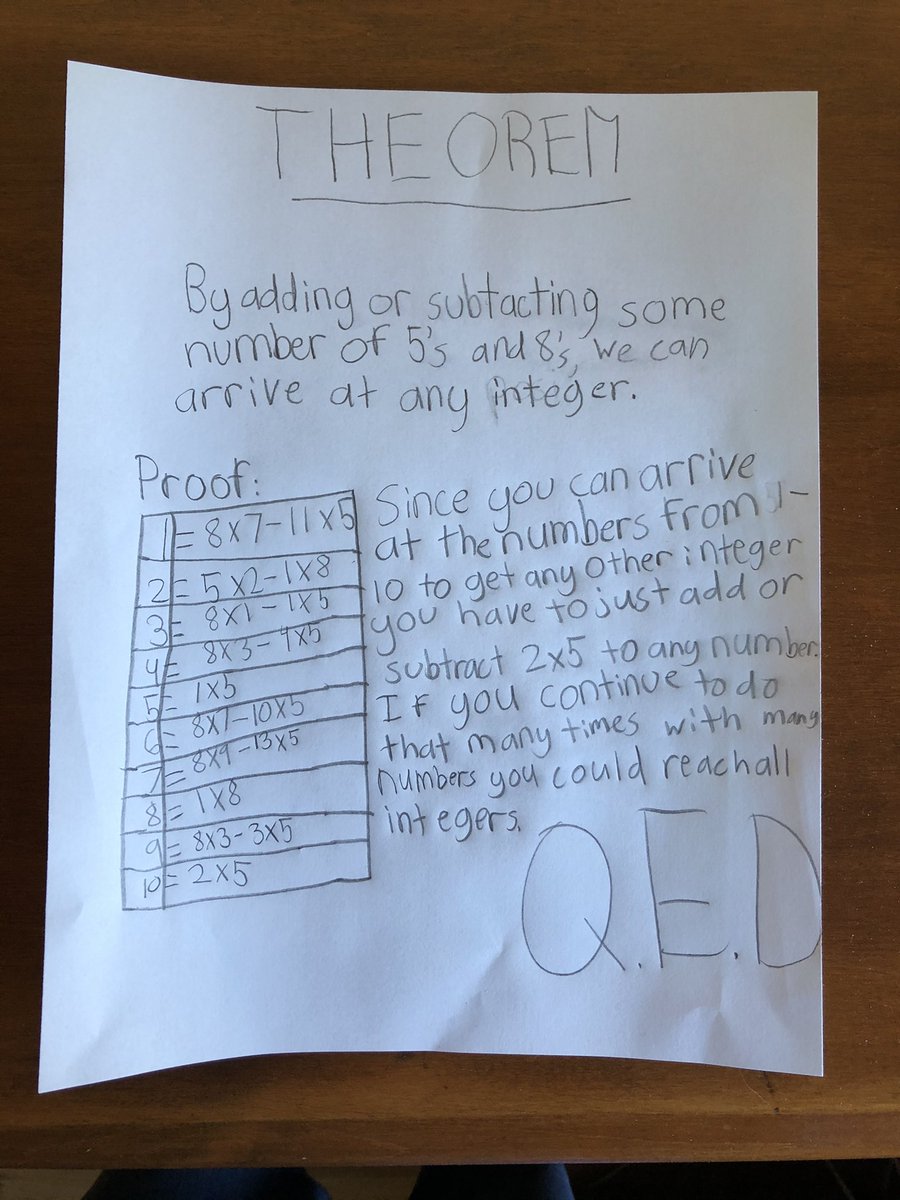 THEOREM
By adding or subtacting some
number of 5's and 8's, we can
arrive at any integer.
Proof:
1 = 8x7-11x5
2 = 5x2-1x8
3 = 8x1-1x5
4 = 8x3-4x5
5 = 1x5
6 = 8x7-10x5
7 = 8x9-13x5
8 = 1x8
9 = 8x3-3x5
10 = 2x5
Since you can arrive
at the numbers from 1-
10 to get any other integer
you have to just add or
subtract 2x5 to any number.
If you continue to do
that many times with many
numbers you could reach all
integers.
Q.E.D